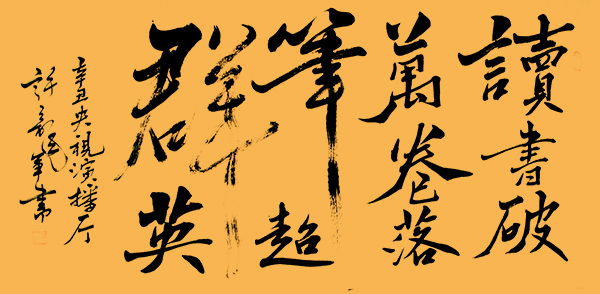 讀書破
萬卷落
筆超
群英
辛丑央視演播厅
許
軍書